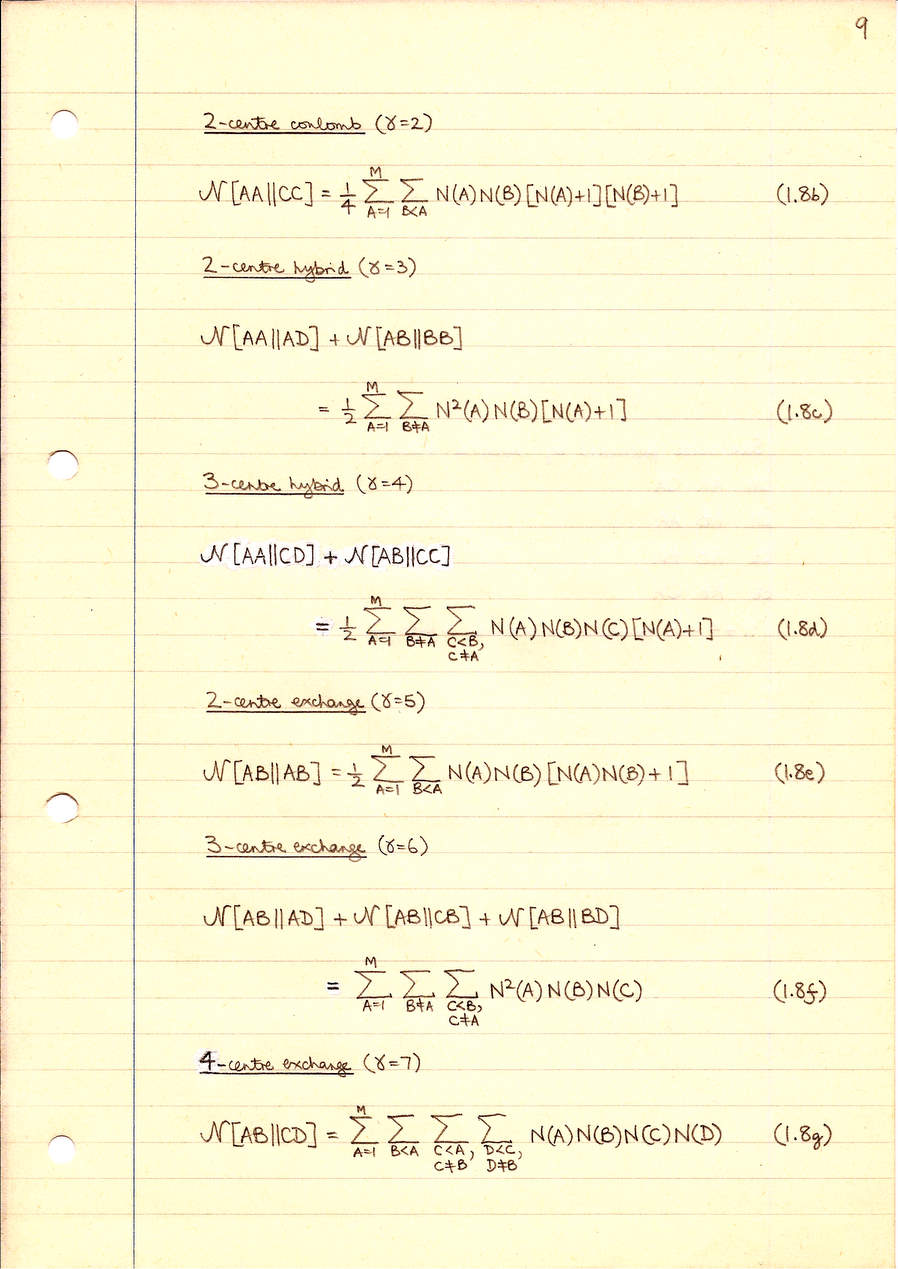 9
2-centre coulomb (γ=2)
𝒩[AA||CC] = 1/4 ∑_{A=1}^{M} ∑_{B<A} N(A)N(B)[N(A)+1][N(B)+1] (1.8b)
2-centre hybrid (γ=3)
𝒩[AA||AD] + 𝒩[AB||BB]
= 1/2 ∑_{A=1}^{M} ∑_{B≠A} N²(A)N(B)[N(A)+1] (1.8c)
3-centre hybrid (γ=4)
𝒩[AA||CD] + 𝒩[AB||CC]
= 1/2 ∑_{A=1}^{M} ∑_{B≠A} ∑_{C<B, C≠A} N(A)N(B)N(C)[N(A)+1] (1.8d)
2-centre exchange (γ=5)
𝒩[AB||AB] = 1/2 ∑_{A=1}^{M} ∑_{B<A} N(A)N(B)[N(A)N(B)+1] (1.8e)
3-centre exchange (γ=6)
𝒩[AB||AD] + 𝒩[AB||CB] + 𝒩[AB||BD]
= ∑_{A=1}^{M} ∑_{B≠A} ∑_{C<B, C≠A} N²(A)N(B)N(C) (1.8f)
4-centre exchange (γ=7)
𝒩[AB||CD] = ∑_{A=1}^{M} ∑_{B<A} ∑_{C<A, C≠B} ∑_{D<C, D≠B} N(A)N(B)N(C)N(D) (1.8g)